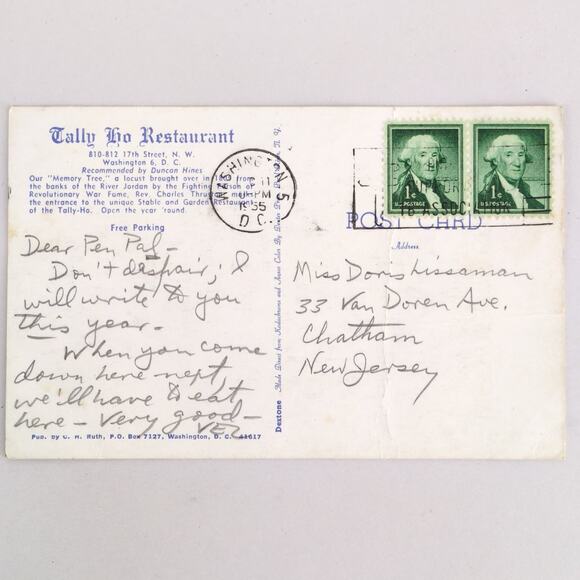 Tally Ho Restaurant
810-812 17th Street, N. W.
Washington 6, D. C.
Recommended by Duncan Hines
Our "Memory Tree," a locust brought over in from
the banks of the River Jordan by the Fighting of
Revolutionary War Fame, Rev. Charles
the entrance to the unique Stable and Garden Restaurant
of the Tally-Ho. Open the year 'round.
Free Parking
Dear Pen Pal-
Don't despair; I
will write to you
this year.
When you come
down here next,
we'll have to eat
here - Very good-
VEL
Pub. by C. H. Ruth, P.O. Box 7127, Washington, D. C. 41617
Dextone Made Direct from Kodachrome and Ansco Color By
WASHINGTON 5
11
PM
1955
D.C.
1¢ 1¢
U.S. POSTAGE U.S. POSTAGE
ASSOCIATION
POST CARD
Address
Miss Doris Lissaman
33 Van Doren Ave.
Chatham
New Jersey